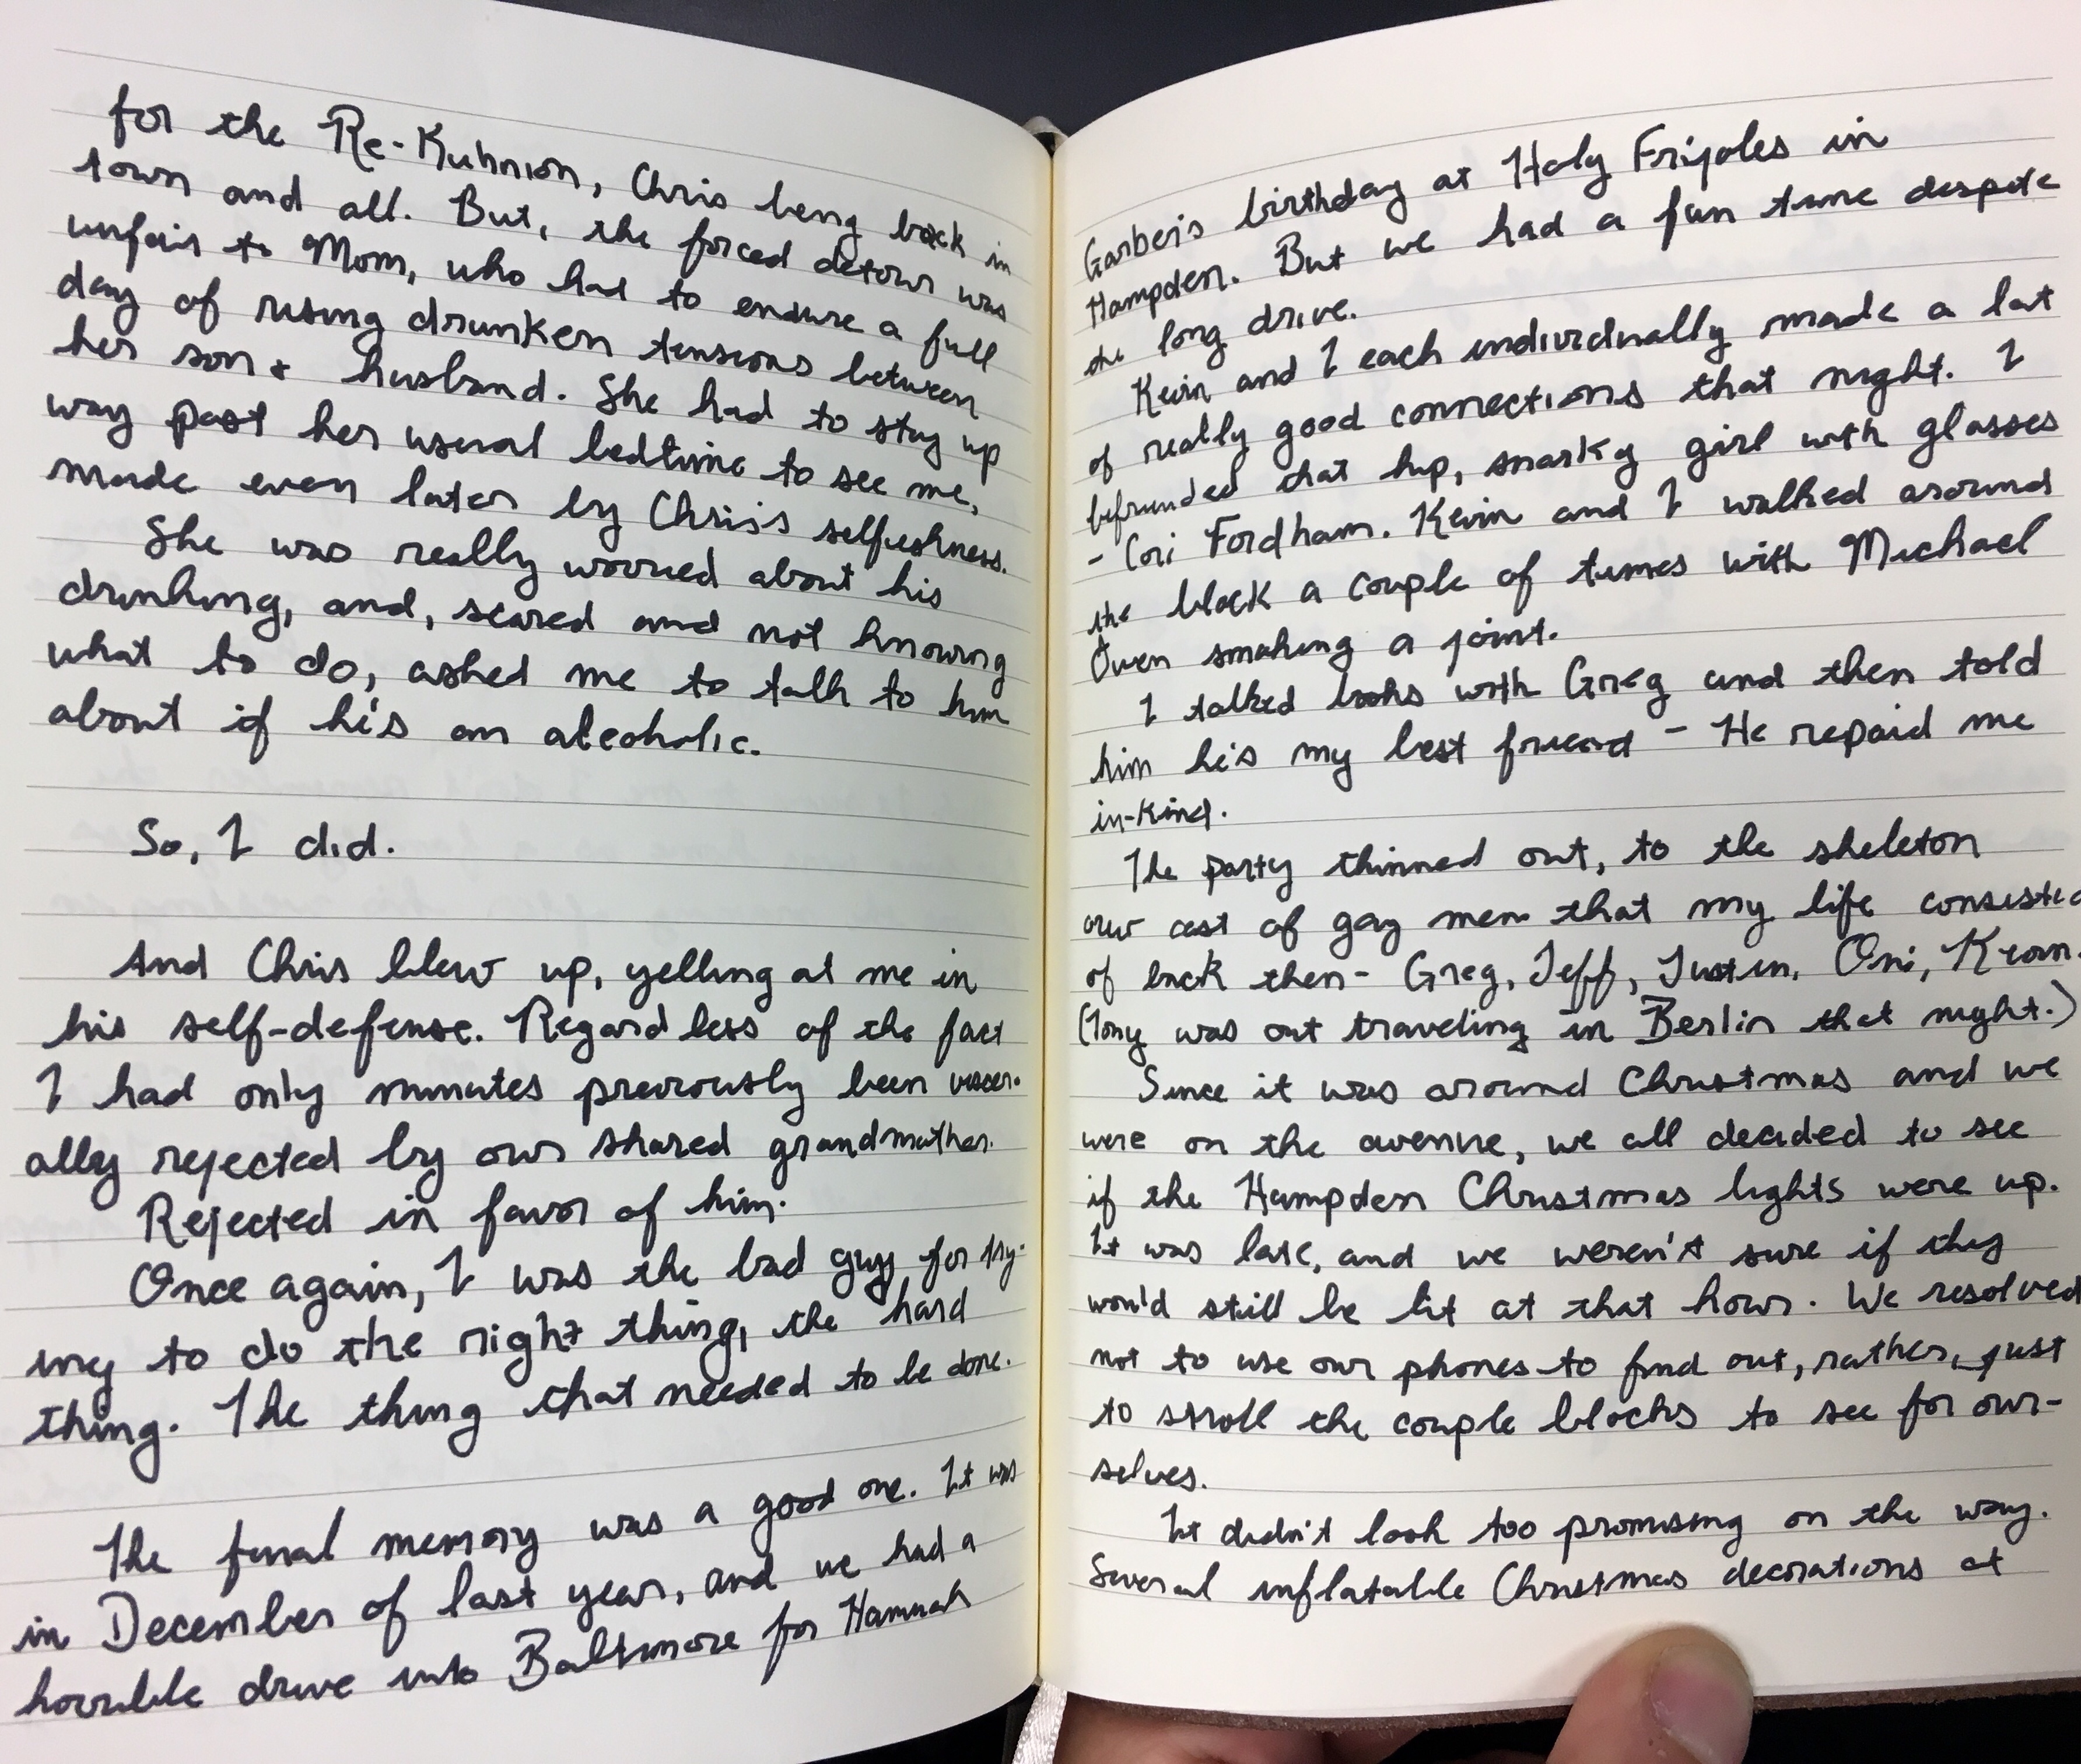 for the Re-Kuhnion, Chris being back in
town and all. But, the forced detour was
unfair to Mom, who had to endure a full
day of rising drunken tensions between
her son + husband. She had to stay up
way past her usual bedtime to see me,
made even later by Chris's selfishness.
She was really worried about his
drinking, and, scared and not knowing
what to do, asked me to talk to him
about if he's an alcoholic.
So, I did.
And Chris blew up, yelling at me in
his self-defense. Regardless of the fact
I had only minutes previously been viscer-
ally rejected by our shared grandmother.
Rejected in favor of him.
Once again, I was the bad guy for try-
ing to do the right thing, the hard
thing. The thing that needed to be done.
The final memory was a good one. It was
in December of last year, and we had a
horrible drive into Baltimore for Hannah
Garber's birthday at Holy Frijoles in
Hampden. But we had a fun time despite
the long drive.
Kevin and I each individually made a lot
of really good connections that night. I
befriended that hip, snarky girl with glasses
- Cori Fordham. Kevin and I walked around
the block a couple of times with Michael
Owen smoking a joint.
I talked books with Greg and then told
him he's my best friend - He repaid me
in-kind.
The party thinned out, to the skeleton
cast of gay men that my life consisted
of back then - Greg, Jeff, Justin, Omi,
(Tony was out traveling in Berlin that night.)
Since it was around Christmas and we
were on the avenue, we all decided to see
if the Hampden Christmas lights were up.
It was late, and we weren't sure if they
would still be lit at that hour. We resolved
not to use our phones to find out, rather, just
to stroll the couple blocks to see for our-
selves.
It didn't look too promising on the way.
Several inflatable Christmas decorations at